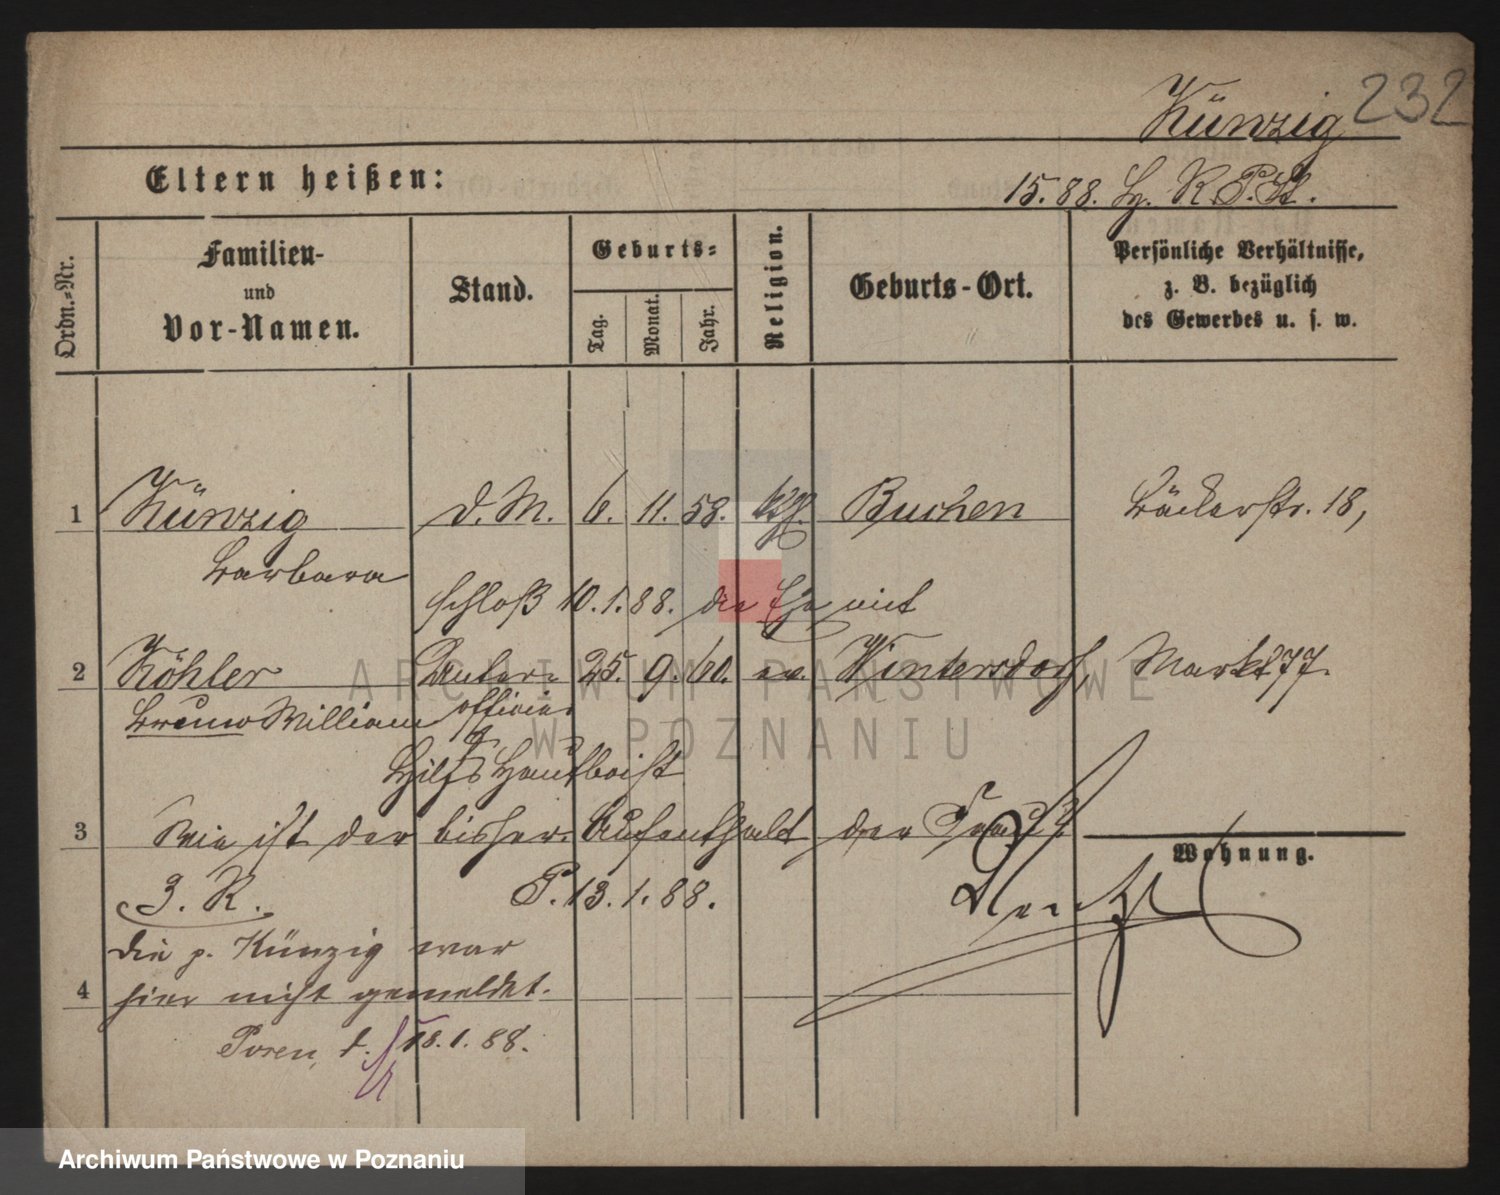 Künzig 232
Eltern heißen:
15. 88. R. P. St.
Ordn.-Nr.
Familien-
und
Vor-Namen.
Stand.
Geburts-
Tag.
Monat.
Jahr.
Religion.
Geburts-Ort.
Persönliche Verhältnisse,
z. B. bezüglich
des Gewerbes u. s. w.
1 Künzig d. M. 6. 11. 58. kth. Buchen Bäckerstr. 18,
Barbara
schloß 10. 1. 88. die Ehe mit
2 Köhler Unter- 25. 9. 60. ev. Wintersdorf, Markt 77.
Bruno William officier
Hilfs Hautboist
3 Wie ist der bisher. Aufenthalt der
Wohnung.
3. R. P. 13. 1. 88.
die p. Künzig war
4 hier nicht gemeldet.
Posen, d. 18. 1. 88.
ARCHIWUM PAŃSTWOWE
W POZNANIU
Archiwum Państwowe w Poznaniu